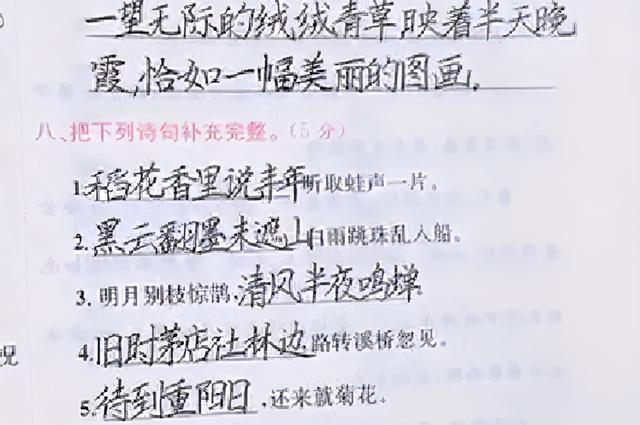 一望无际的绒绒青草映着半天晚
霞,恰如一幅美丽的图画.
八、把下列诗句补充完整。(5分)
1.稻花香里说丰年听取蛙声一片。
2.黑云翻墨未遮山白雨跳珠乱入船。
3.明月别枝惊鹊,清风半夜鸣蝉
4.旧时茅店社林边路转溪桥忽见。
5.待到重阳日,还来就菊花。